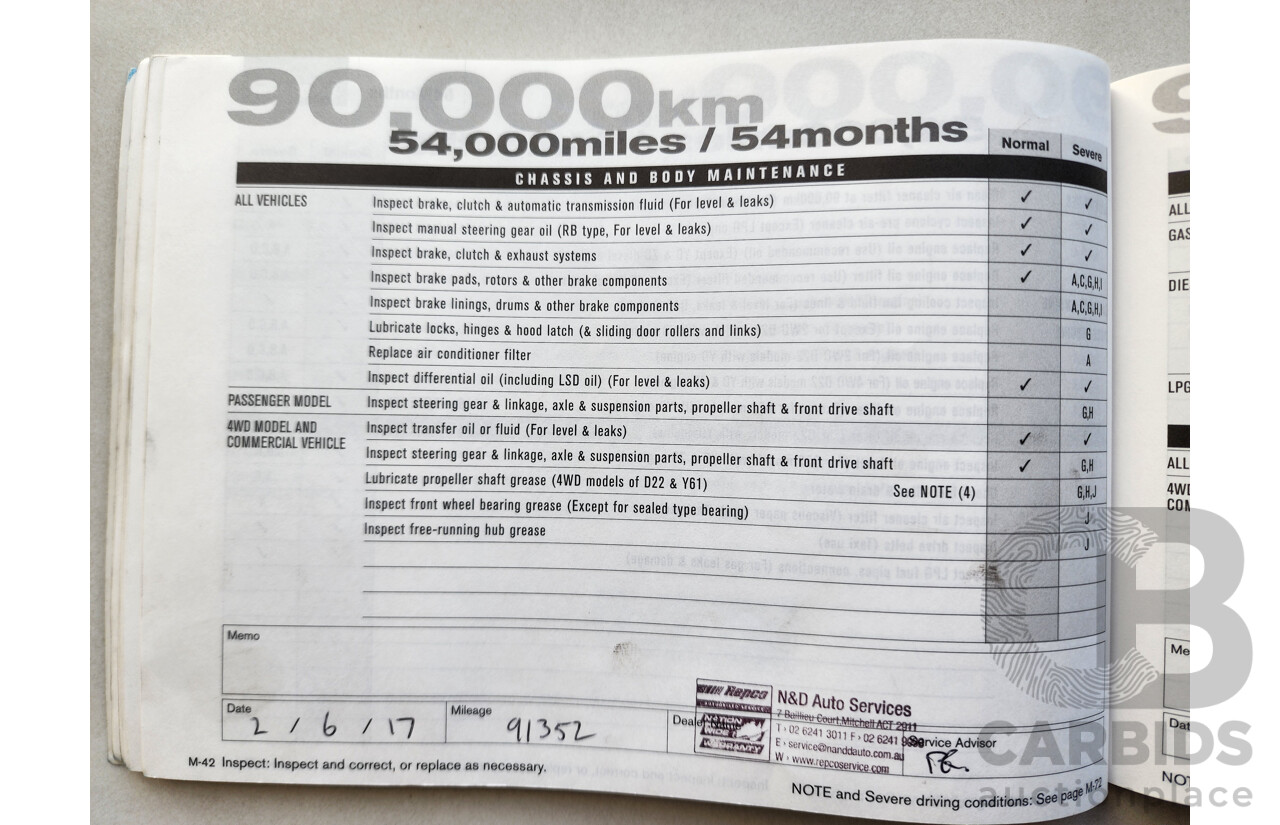 90,000km
54,000miles / 54months
Normal Severe
CHASSIS AND BODY MAINTENANCE
ALL VEHICLES Inspect brake, clutch & automatic transmission fluid (For level & leaks) ✓ ✓
Inspect manual steering gear oil (RB type, For level & leaks) ✓ ✓
Inspect brake, clutch & exhaust systems ✓ ✓
Inspect brake pads, rotors & other brake components ✓ A,C,G,H,I
Inspect brake linings, drums & other brake components A,C,G,H,I
Lubricate locks, hinges & hood latch (& sliding door rollers and links) G
Replace air conditioner filter A
Inspect differential oil (including LSD oil) (For level & leaks) ✓ ✓
PASSENGER MODEL Inspect steering gear & linkage, axle & suspension parts, propeller shaft & front drive shaft G,H
4WD MODEL AND Inspect transfer oil or fluid (For level & leaks) ✓ ✓
COMMERCIAL VEHICLE Inspect steering gear & linkage, axle & suspension parts, propeller shaft & front drive shaft ✓ G,H
Lubricate propeller shaft grease (4WD models of D22 & Y61) See NOTE (4) G,H,J
Inspect front wheel bearing grease (Except for sealed type bearing) J
Inspect free-running hub grease J
Memo
Date 2 / 6 / 17
Mileage 91352
Repco
NATION
WIDE
WARRANTY
N&D Auto Services
7 Baillieu Court, Mitchell ACT 2911
T • 02 6241 3011 F • 02 6241
E • service@nanddauto.com.au
W • www.repcoservice.com
Service Advisor
M-42 Inspect: Inspect and correct, or replace as necessary.
NOTE and Severe driving conditions: See page M-72
ALL
GAS
DIE
LPG
ALL
4WD
COM
Me
Dat
NO
CARBIDS
auctionplace